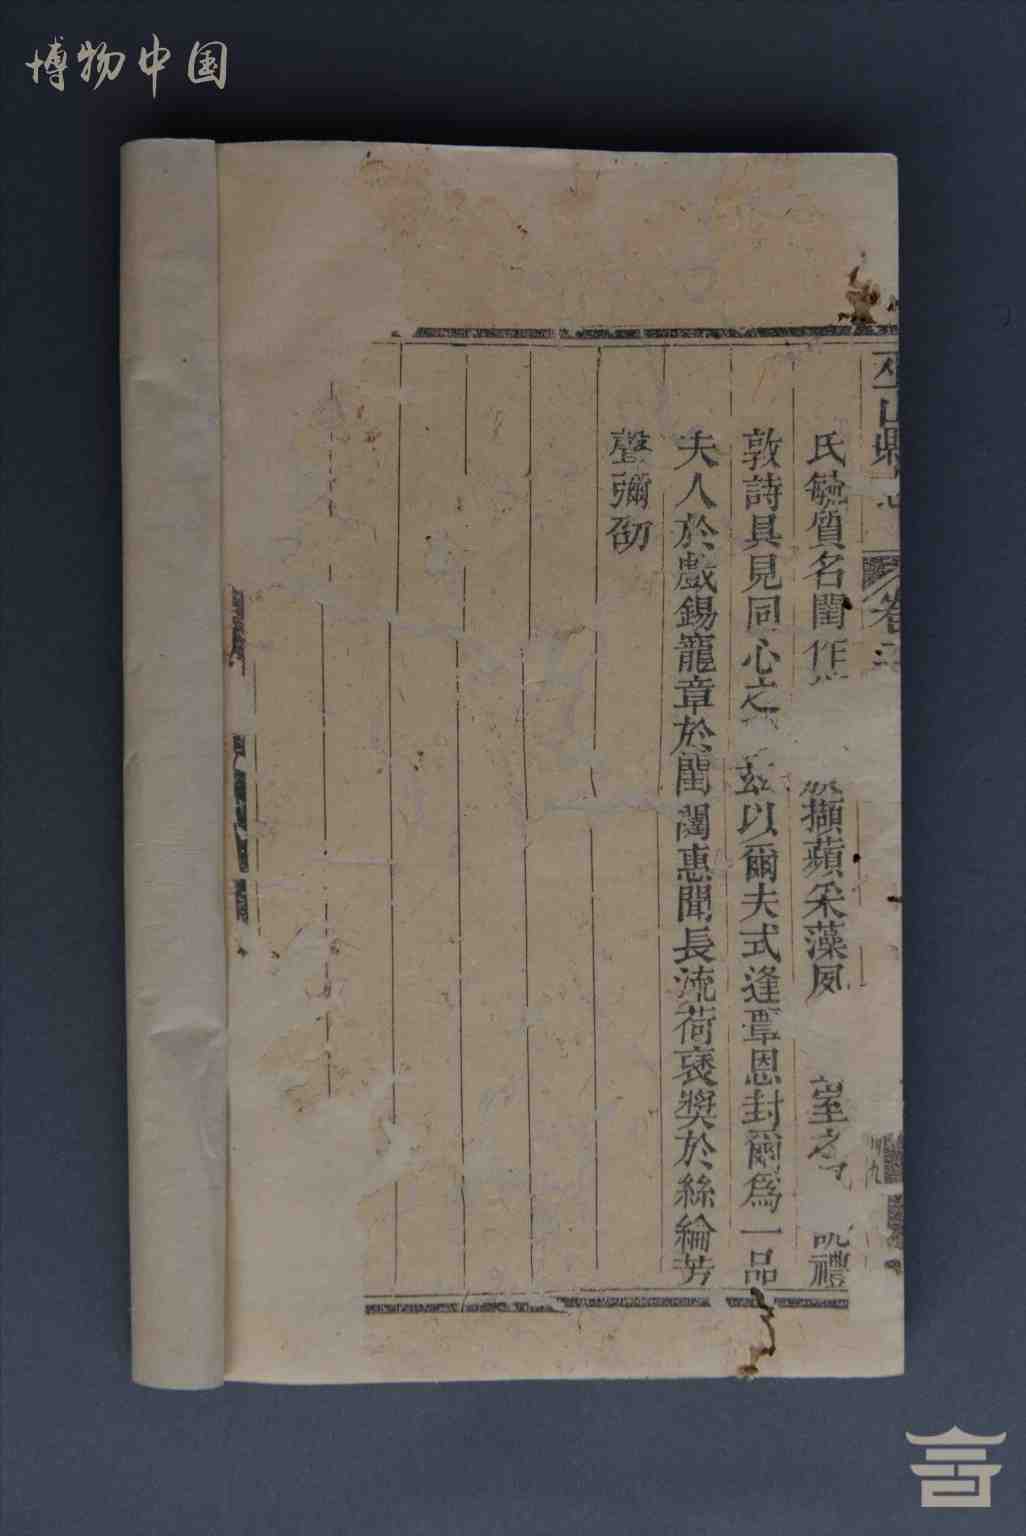 博物中国
巫山縣志
卷之
九
氏毓質名閨作
擷蘋采藻夙
室之
禮
敦詩具見同心之
兹以爾夫式逢覃恩封爾爲一品
夫人於戲錫寵章於閨閫惠聞長流荷褒奬於絲綸芳
聲彌劭